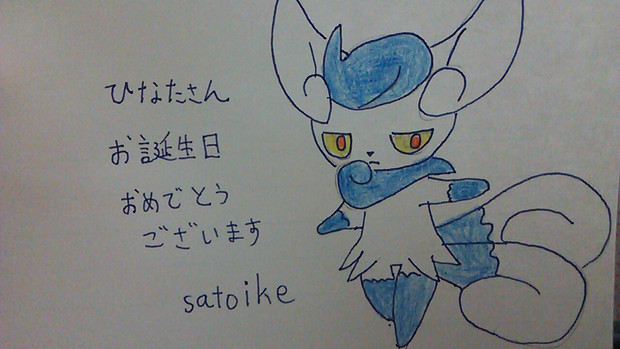 ひなたさん
お誕生日
おめでとう
ございます
satoike